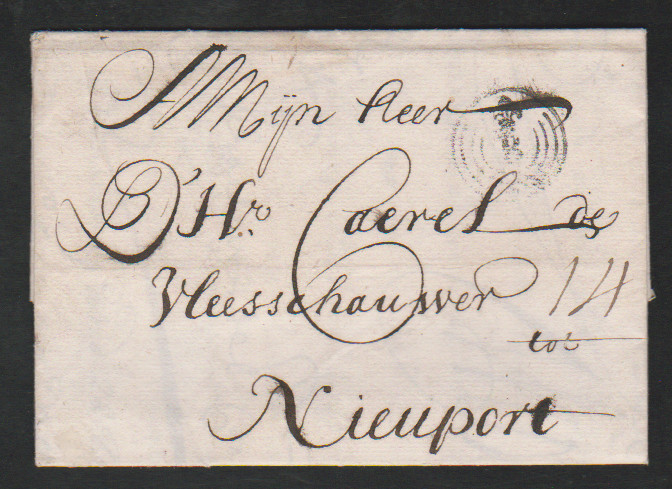 A Mijn heer
D'Hr. Caerel de
Vleesschauwer 14
tot
Nieuport